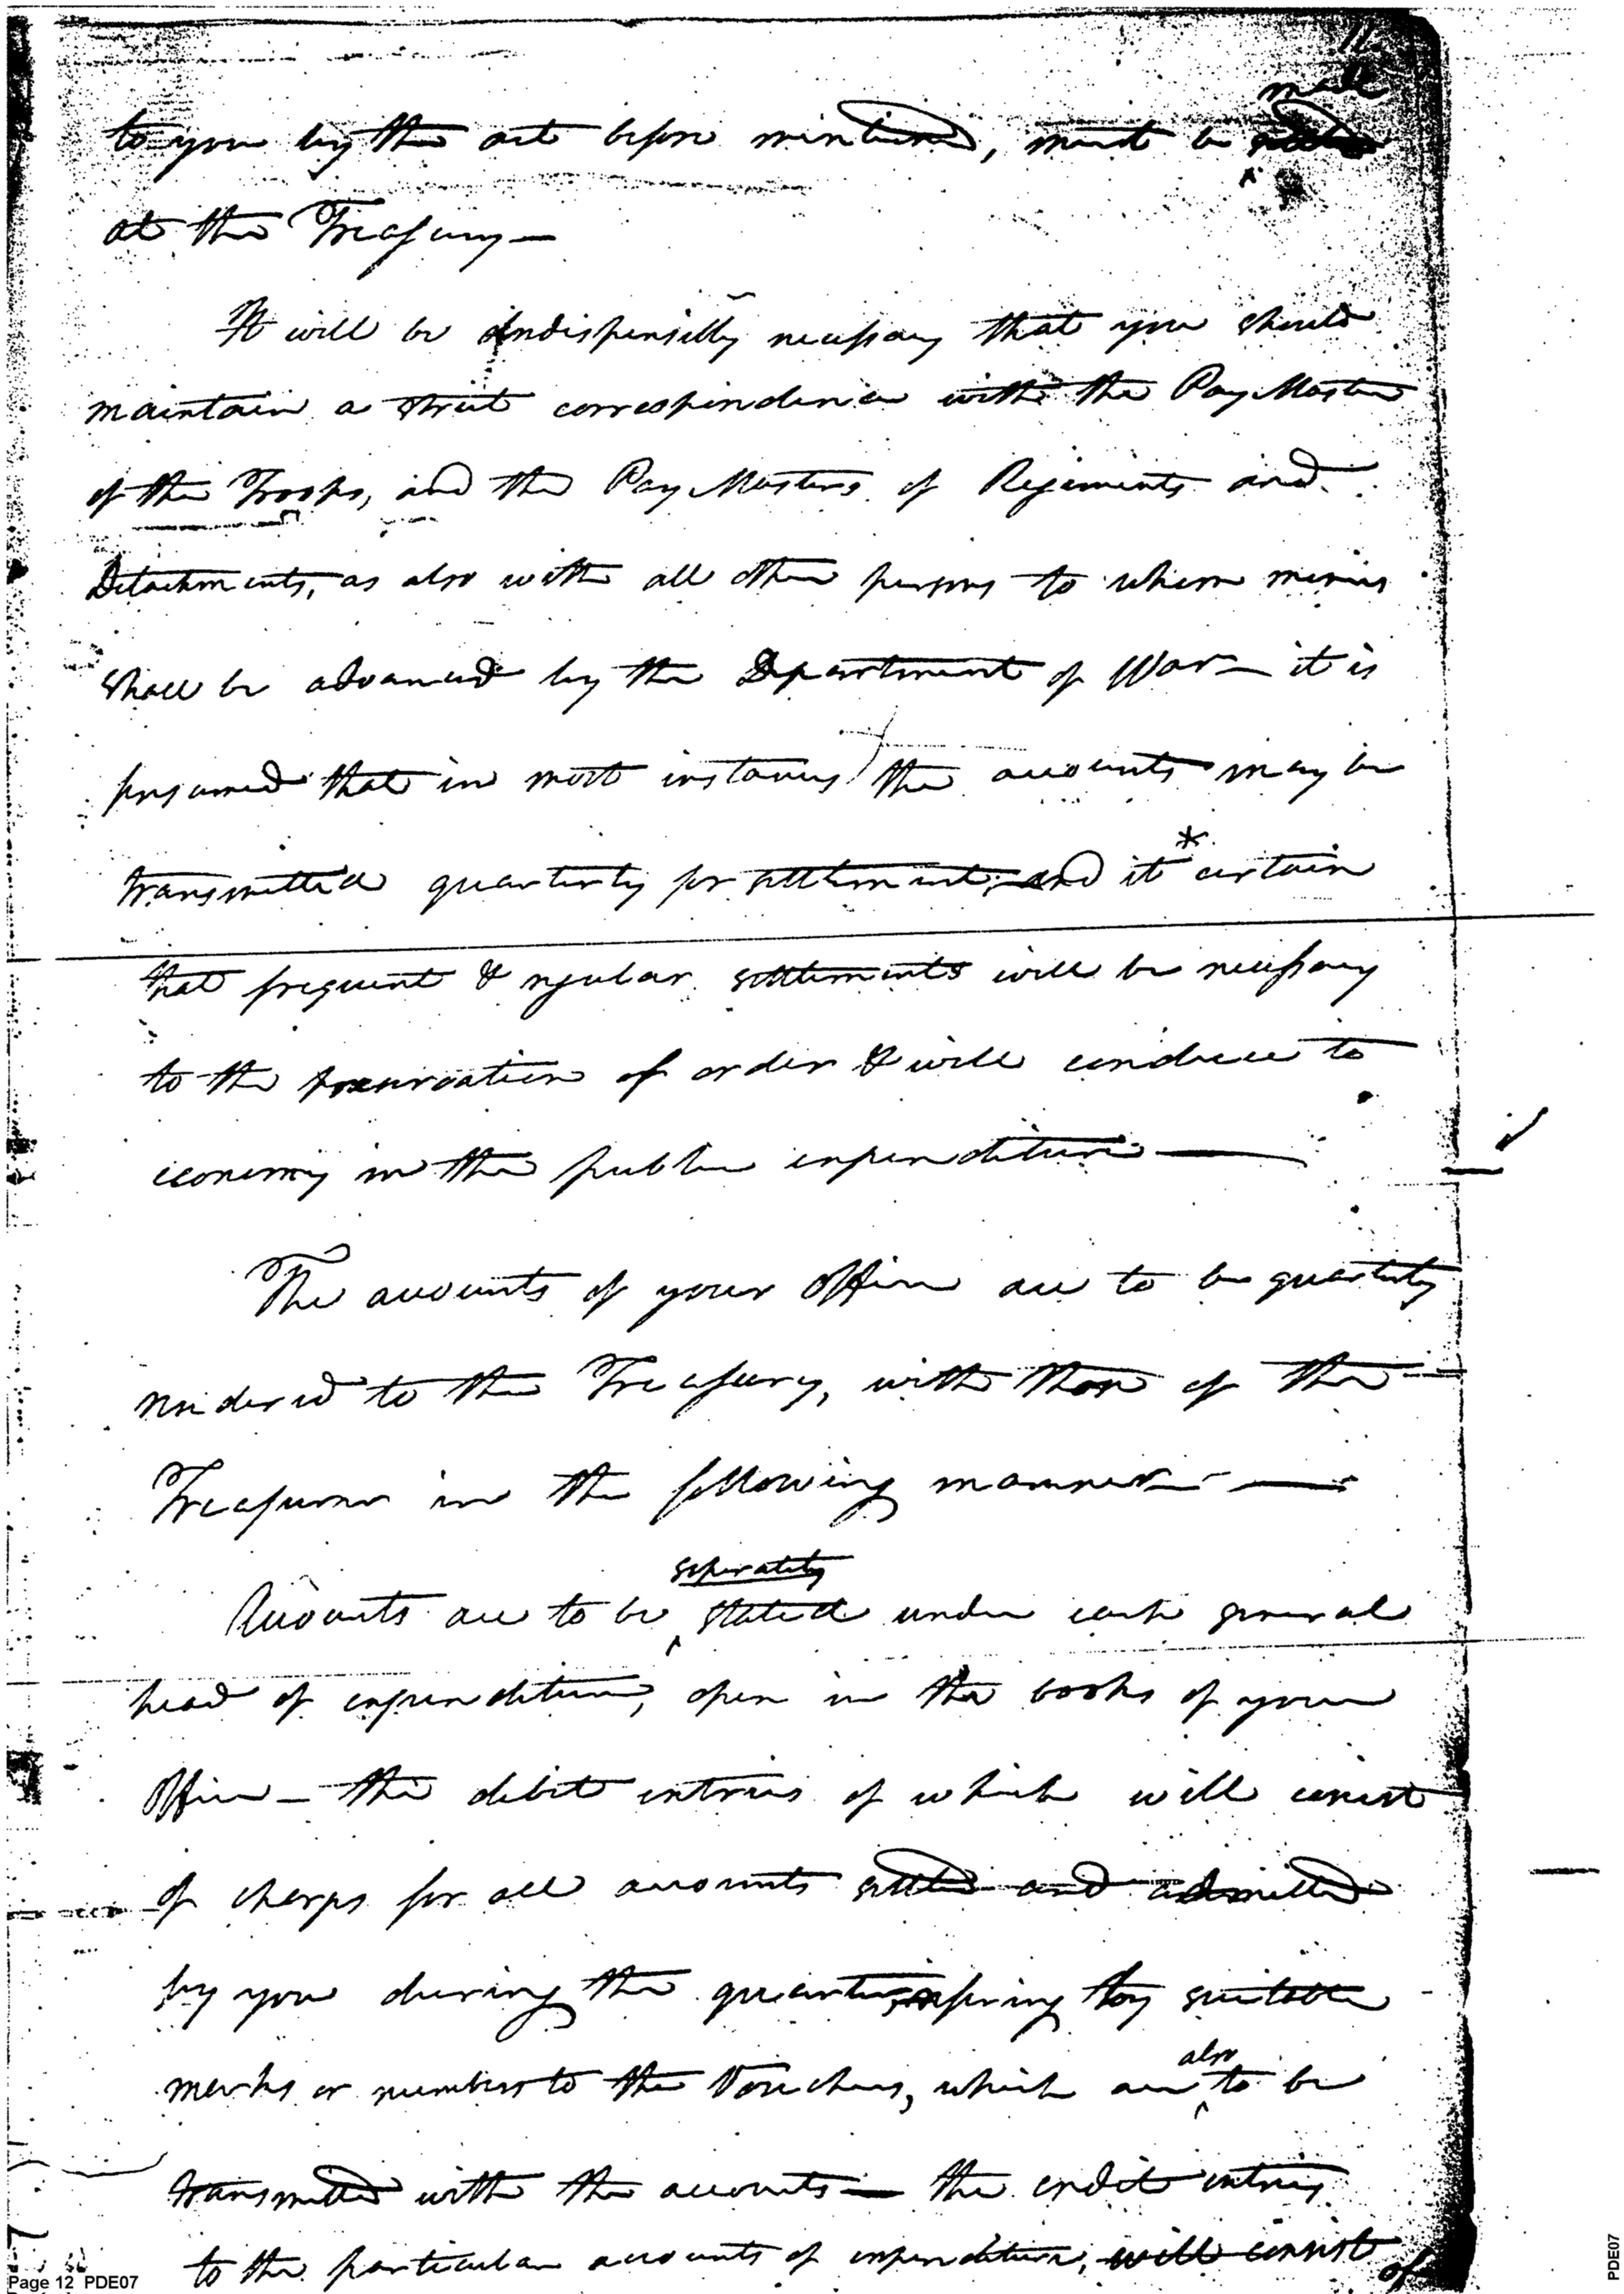 11
made
to you by the act before mentioned, must be
at the Treasury—
It will be Indispensibly necessary that you should
maintain a strict correspondence with the Pay Master
of the Troops, and the Pay Masters of Regiments and
Detachments, as also with all other persons to whom monies
shall be advanced by the Department of War — it is
presumed that in most instances the accounts may be
transmitted quarterly for settlement, and it * certain
that frequent & regular settlements will be necessary
to the preservation of order & will conduce to
economy in the public expenditure —
The accounts of your Office are to be quarterly
rendered to the Treasury, with those of the
Treasurer in the following manner —
seperately
Accounts are to be stated under each general
head of expenditure, open in the books of your
Office — the debit entries of which will consist
of charges for all accounts settled and admitted
by you during the quarter, refering by suitable
also
marks or numbers to the Vouchers, which are to be
transmitted with the accounts — the credit entries
to the particular accounts of expenditure, will consist of
Page 12 PDE07
PDE07